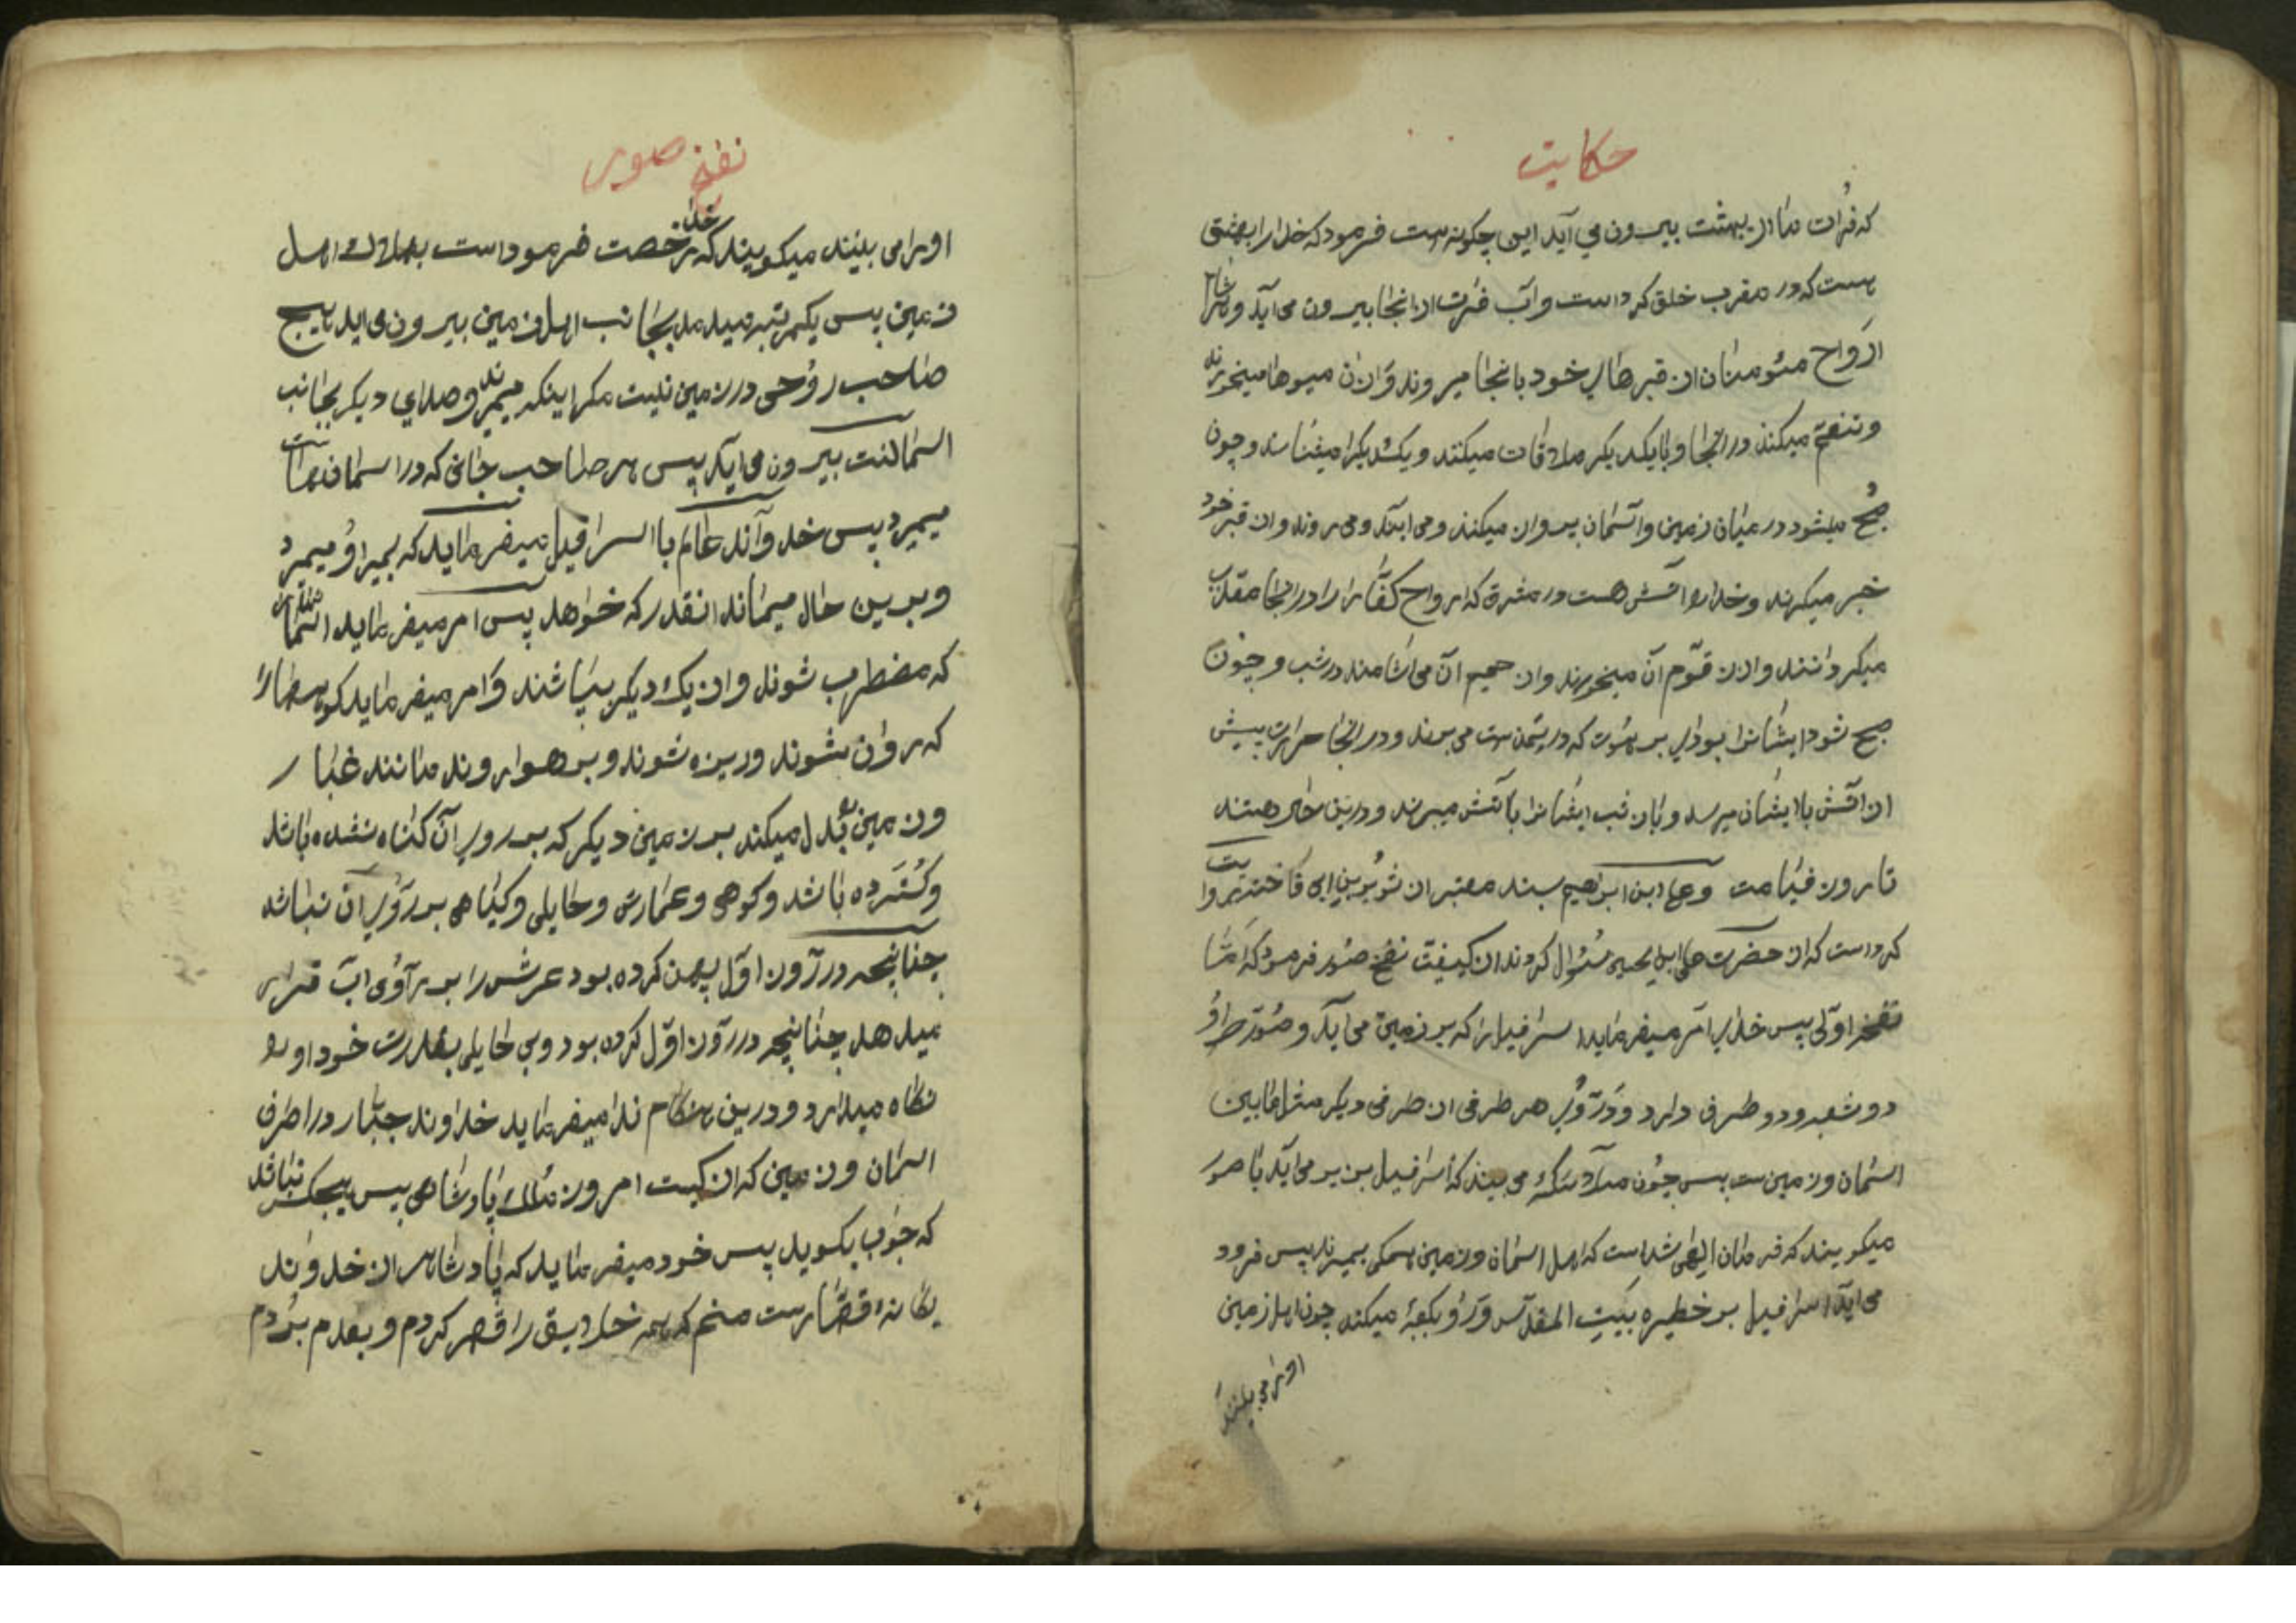 حکایت
که فرات ما از بهشت بیرون می آید این چکونه است فرمود که خدا را بهشتی
هست که در مغرب خلق کرد است و آب فرات از انجا بیرون می آید و
ارواح مئومنان از قبرهای خود بانجا میروند و از ان میوها میخورند
و تنعم میکنند در انجا و با یکدیکر ملاقات میکنند و یکدیکرا میشناسند و چون
صبح میشود در میان زمین و آسمان پرواز میکنند و می ایند و می روند و از قبر خود
خبر میکیرند و خدا را آتش هست در مشرق که ارواح کفار را در انجا معذب
میکردانند و از زقوم آن میخورند و از حمیم آن می اشامند در شب و چون
صبح شود ایشانرا بوادی برهوت که در یمن است می برند و در انجا حرارت بیش
از آتش با ایشان میرسد و باز شب ایشانرا باآتش میبرند و درین حال هستند
تا روز قیامت و علی ابن ابرهیم بسند معتبر از ثویر بن ابی فاخته روایت
کرد است که از حضرت علی ابن الحسین سئوال کردند از کیفیت نفخ صور فرمود که اما
نفخه اولی پس خدای امر میفرماید اسرافیل را که بر زمین می آید و صور
دو شعبه و دو طرف دارد و دوری هر طرفی از طرفی دیکر مثل مابین
اسمان و زمین ست پس چون ملائکه می بینند که اسرافیل بزیر می آید با صور
میکویند که فرمان الهی شد است که اهل اسمان و زمین همکی بمیرند پس فرود
می آید اسرافیل بر خطیره بیت المقدس و رو بکعبه میکند چون اهل زمین
اورا می بلیند
نفخ صور
اورا می بلیند میکویند که خدا رخصت فرمود است بهلاک اهل
زمین پس یکمرتبه میدمد بجانب اهل زمین بیرون می اید هیچ
صاحب روحی در زمین نیست مکر اینکه میمرند و صدای دیکر بجانب
اسمانست بیرون می آید پس هر صاحب جانی که در اسمانهاست
میمیرد پس خداوند عالم با اسرافیل میفرماید که بمیر او میمیرد
و برین حال میماند انقدر که خواهد پس امر میفرماید اسمان
که مضطرب شوند و از یک دیکر بپاشند و امر میفرماید کوهها را
که روان بشوند و ریزه شوند و بر هوا روند مانند غبار
و زمین بدل میکند بر زمین دیکر که بر روی آن کناه نشده باشد
و کسترده باشد و کوهی و عمارتی و حایلی و کیاهی بر روی آن نباشد
چنانچه در روز اول پهن کرده بود عرش را بر روی اب قرار
میدهد چنانچه در روز اول کرده بود و بی حایلی بقدرت خود او را
نکاه میدارد و درین هنکام ندا میفرماید خداوند جبار در اطرف
اسمان و زمین که از کیست امروز ملک پادشاهی پس هیچکس نباشد
که جواب بکوید پس خود میفرماید که پادشاهی از خداوند
یکانه قهارست منم که همه خلایق را قهر کردم و بعدم بردم